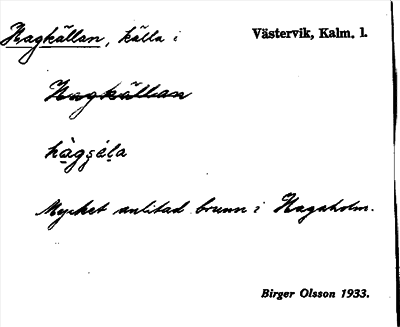 Hagkällan, källa i Västervik, Kalm. l.
Hagkällan
Mycket anlitad brunn i Hagaholm.
Birger Olsson 1933.